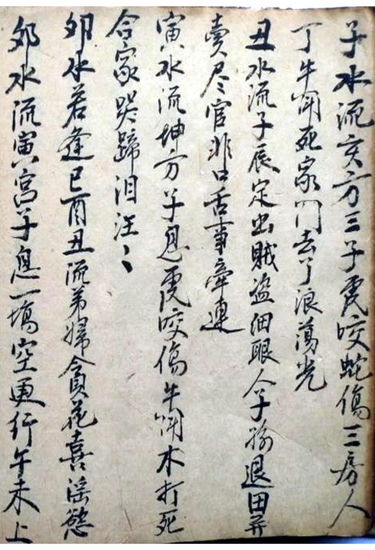 子水流亥方三子虎咬蛇傷三房人
丁牛死家门去了浪蕩光
丑水流子辰定出賊盜細眼人子孫退田
賣尽官非口舌事牽連
寅水流坤方子息虎咬傷牛木打死
合家哭蹄泪汪〻
卯水若逢巳酉丑流弟婦貪花喜淫慾
卯水流寅宮子息一塲空更行午未上